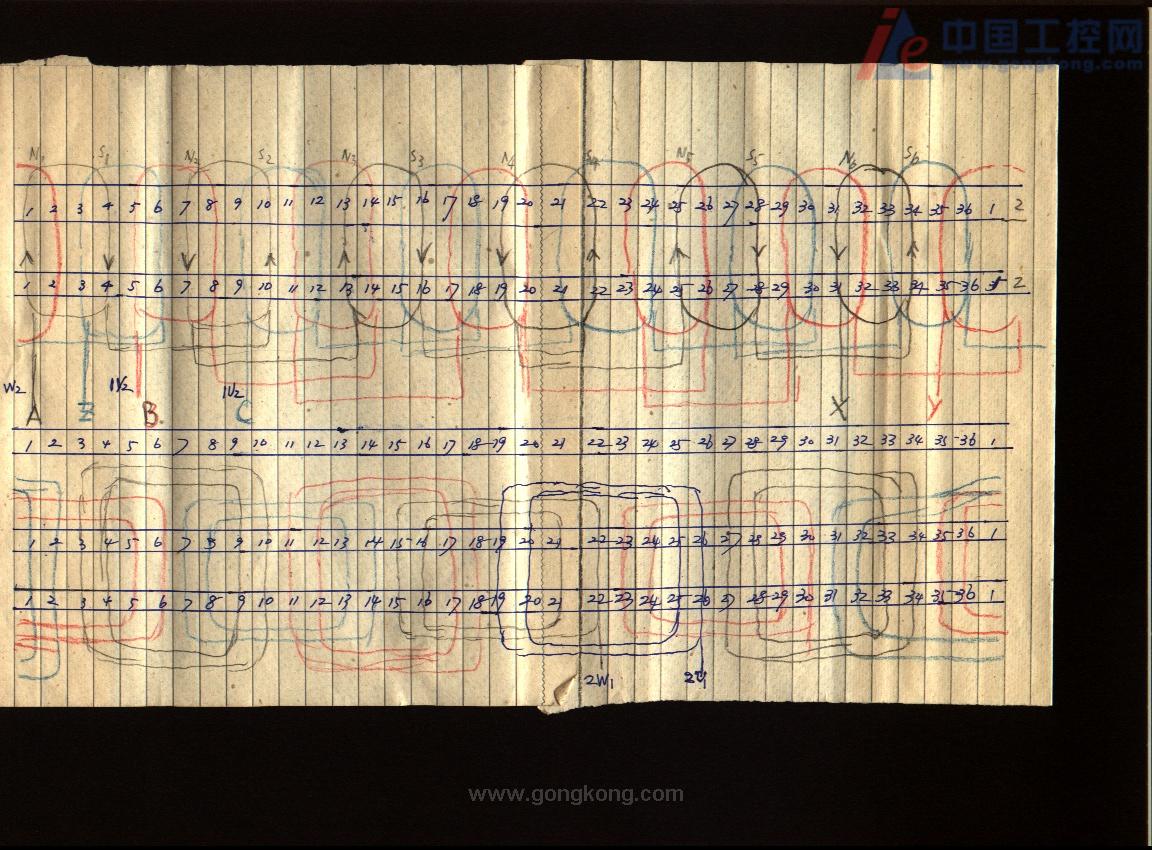 中国工控网
www.gongkong.com
N1 S1 N2 S2 N3 S3 N4 S4 N5 S5 N6 S6
1 2 3 4 5 6 7 8 9 10 11 12 13 14 15 16 17 18 19 20 21 22 23 24 25 26 27 28 29 30 31 32 33 34 35 36 1 2
1 2 3 4 5 6 7 8 9 10 11 12 13 14 15 16 17 18 19 20 21 22 23 24 25 26 27 28 29 30 31 32 33 34 35 36 1 2
W2 1V2 1U2
A Z B C X Y
1 2 3 4 5 6 7 8 9 10 11 12 13 14 15 16 17 18 19 20 21 22 23 24 25 26 27 28 29 30 31 32 33 34 35 36 1
1 2 3 4 5 6 7 8 9 10 11 12 13 14 15 16 17 18 19 20 21 22 23 24 25 26 27 28 29 30 31 32 33 34 35 36 1
1 2 3 4 5 6 7 8 9 10 11 12 13 14 15 16 17 18 19 20 21 22 23 24 25 26 27 28 29 30 31 32 33 34 35 36 1
2W1
www.gongkong.com